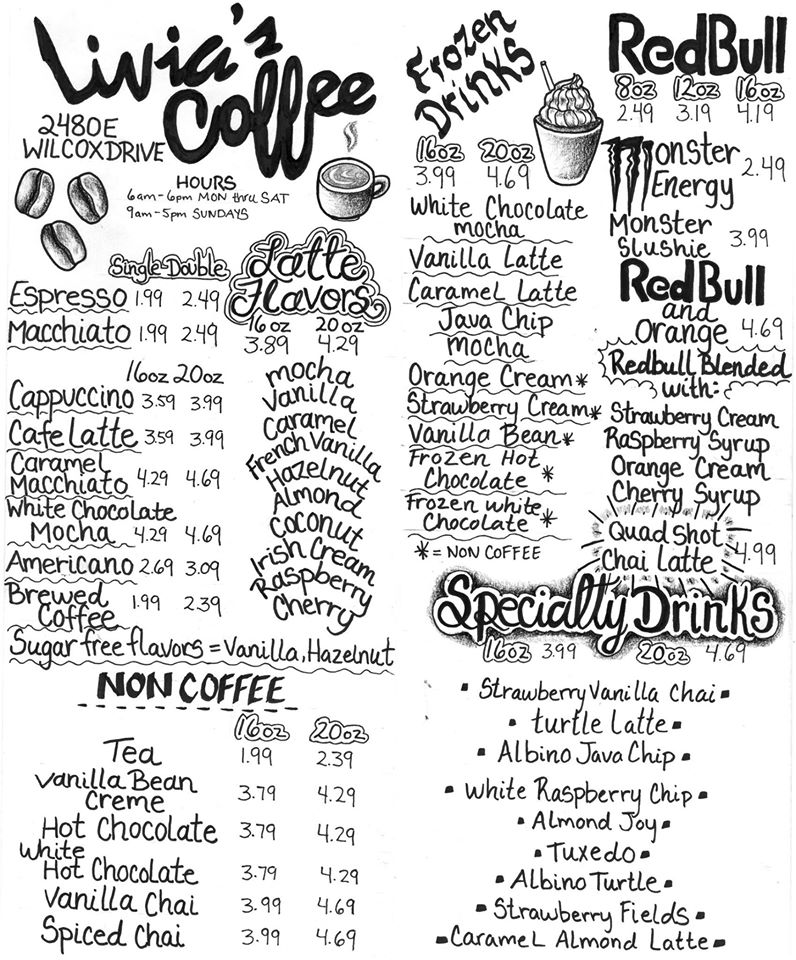 Livia's
Coffee
2480 E
WILCOX DRIVE
HOURS
6am-6pm MON thru SAT
9am-5pm SUNDAYS
Single-Double
Espresso 1.99 2.49
Macchiato 1.99 2.49
16oz 20oz
Cappuccino 3.59 3.99
Cafe Latte 3.59 3.99
Caramel
Macchiato 4.29 4.69
White Chocolate
Mocha 4.29 4.69
Americano 2.69 3.09
Brewed
Coffee 1.99 2.39
Sugar free flavors = Vanilla, Hazelnut
Latte
Flavors
16oz 20oz
3.89 4.29
mocha
Vanilla
Caramel
French Vanilla
Hazelnut
Almond
Coconut
Irish Cream
Raspberry
Cherry
NON COFFEE
16oz 20oz
Tea 1.99 2.39
Vanilla Bean
Creme 3.79 4.29
Hot Chocolate 3.79 4.29
White
Hot Chocolate 3.79 4.29
Vanilla Chai 3.99 4.69
Spiced Chai 3.99 4.69
Frozen
Drinks
16oz 20oz
3.99 4.69
White Chocolate
mocha
Vanilla Latte
Caramel Latte
Java Chip
Mocha
Orange Cream*
Strawberry Cream*
Vanilla Bean*
Frozen Hot
Chocolate *
Frozen White
Chocolate *
* = NON COFFEE
RedBull
8oz 12oz 16oz
2.49 3.19 4.19
Monster
Energy 2.49
Monster
Slushie 3.99
RedBull
and
Orange 4.69
Redbull Blended
with:
Strawberry Cream
Raspberry Syrup
Orange Cream
Cherry Syrup
Quad Shot
Chai Latte 4.99
Specialty Drinks
16oz 3.99 20oz 4.69
▪ Strawberry Vanilla Chai ▪
▪ turtle Latte ▪
▪ Albino Java Chip ▪
▪ White Raspberry Chip ▪
▪ Almond Joy ▪
▪ Tuxedo ▪
▪ Albino Turtle ▪
▪ Strawberry Fields ▪
▪ Caramel Almond Latte ▪